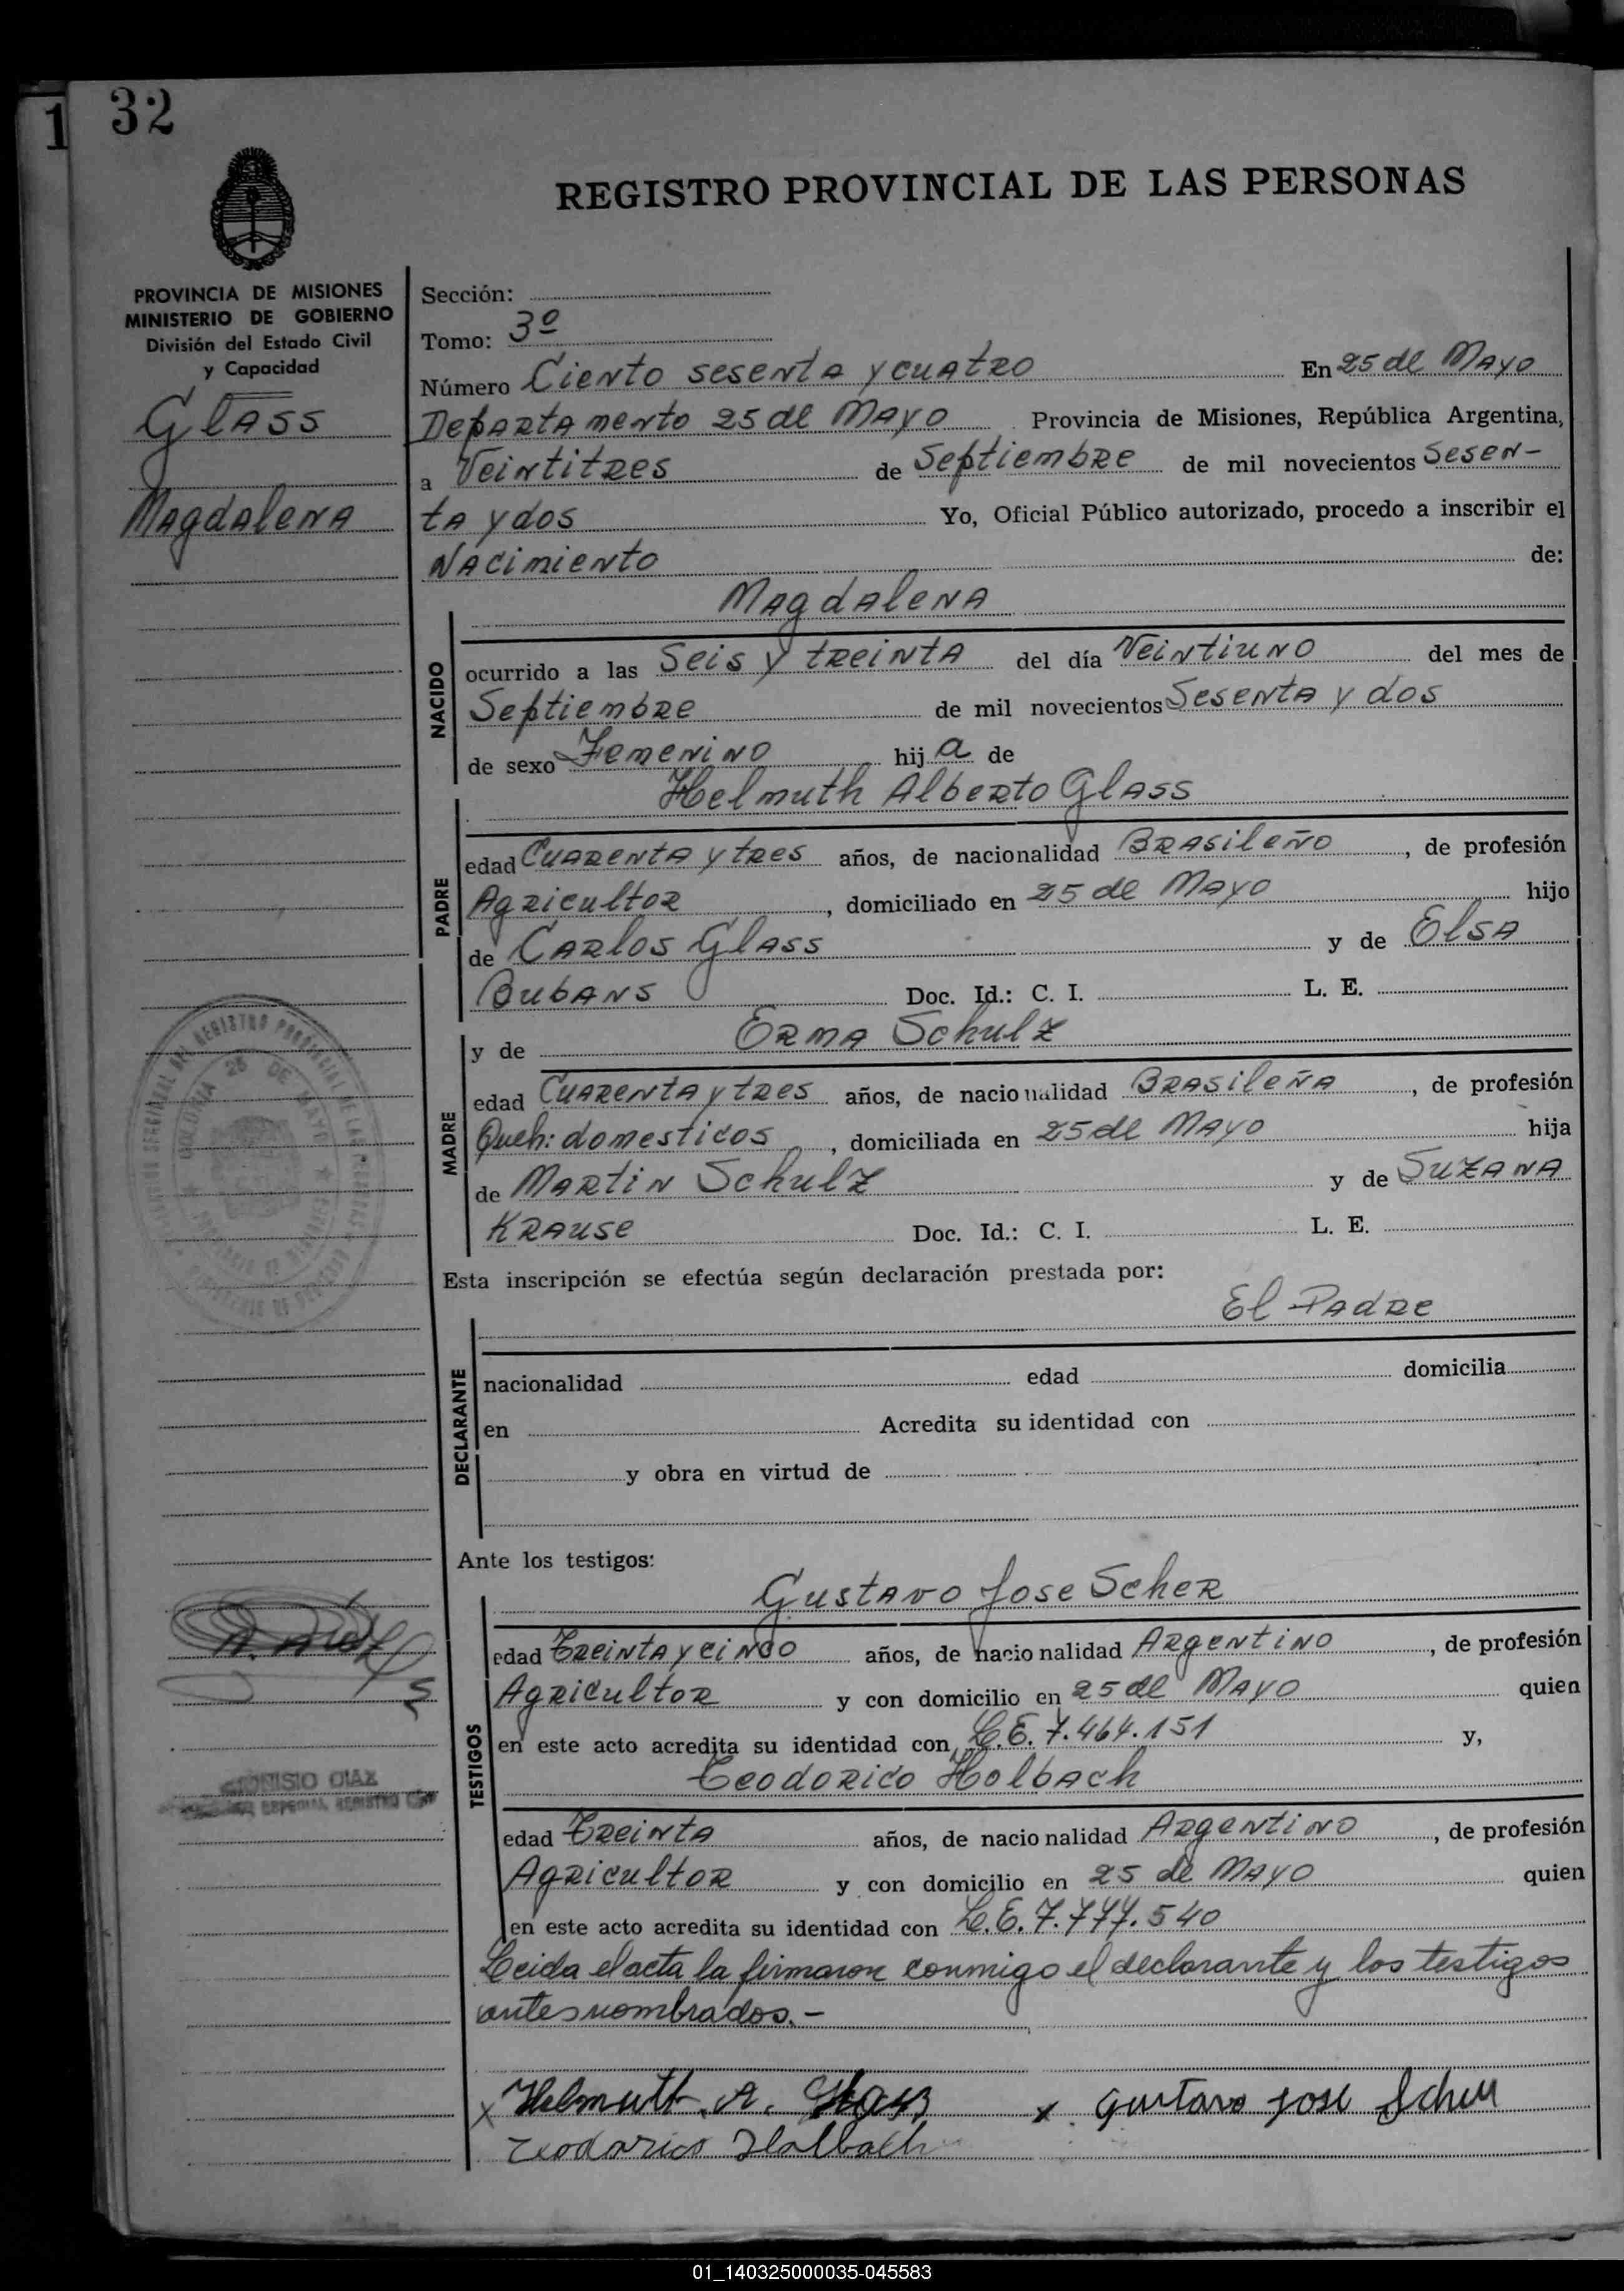 1
32
REGISTRO PROVINCIAL DE LAS PERSONAS
PROVINCIA DE MISIONES
MINISTERIO DE GOBIERNO
División del Estado Civil
y Capacidad
Glass
Magdalena
Sección:
Tomo: 3º
Número Ciento sesenta y cuatro En 25 de Mayo
Departamento 25 de Mayo Provincia de Misiones, República Argentina,
a Veintitres de Septiembre de mil novecientos Sesen-
ta y dos Yo, Oficial Público autorizado, procedo a inscribir el
Nacimiento de:
Magdalena
NACIDO
ocurrido a las Seis y treinta del día Veintiuno del mes de
Septiembre de mil novecientos Sesenta y dos
de sexo Femenino hija de
Helmuth Alberto Glass
PADRE
edad Cuarenta y tres años, de nacionalidad Brasileño, de profesión
Agricultor, domiciliado en 25 de Mayo hijo
de Carlos Glass y de Elsa
Bubans Doc. Id.: C. I. L. E.
y de Erma Schulz
MADRE
edad Cuarenta y tres años, de nacionalidad Brasileña, de profesión
Queh: domesticos, domiciliada en 25 de Mayo hija
de Martin Schulz y de Suzana
Krause Doc. Id.: C. I. L. E.
Esta inscripción se efectúa según declaración prestada por:
El Padre
DECLARANTE
nacionalidad edad domicilia
en Acredita su identidad con
y obra en virtud de
Ante los testigos:
Gustavo Jose Scher
TESTIGOS
edad Treinta y cinco años, de nacionalidad Argentino, de profesión
Agricultor y con domicilio en 25 de Mayo quien
en este acto acredita su identidad con L.E. 7.464.151 y,
Teodorico Holbach
edad Treinta años, de nacionalidad Argentino, de profesión
Agricultor y con domicilio en 25 de Mayo quien
en este acto acredita su identidad con L.E. 7.777.540
Leida el acta la firmaron conmigo el declarante y los testigos
antes nombrados.-
x Helmuth A. Glass x Gustavo Jose Scher
Teodorico Holbach
DIONISIO DIAZ
ESPECIAL REGISTRO
01_140325000035-045583